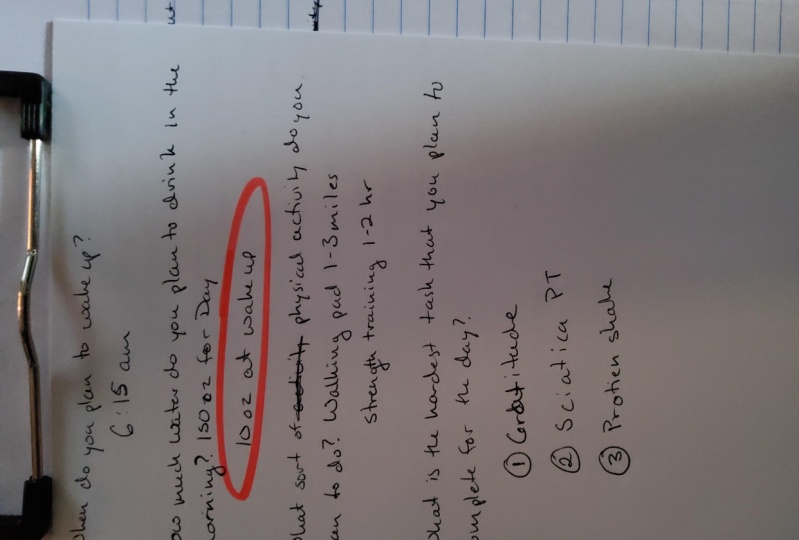 hen do you plan to wake up?
6:15 am
ow much water do you plan to drink in the
orning? 150 oz for Day
10 oz at wake up
hat sort of activity physical activity do you
an to do? Walking pad 1-3 miles
Strength training 1-2 hr
hat is the hardest task that you plan to
omplete for the day?
① Gratitude
② Sciatica PT
③ Protien shake